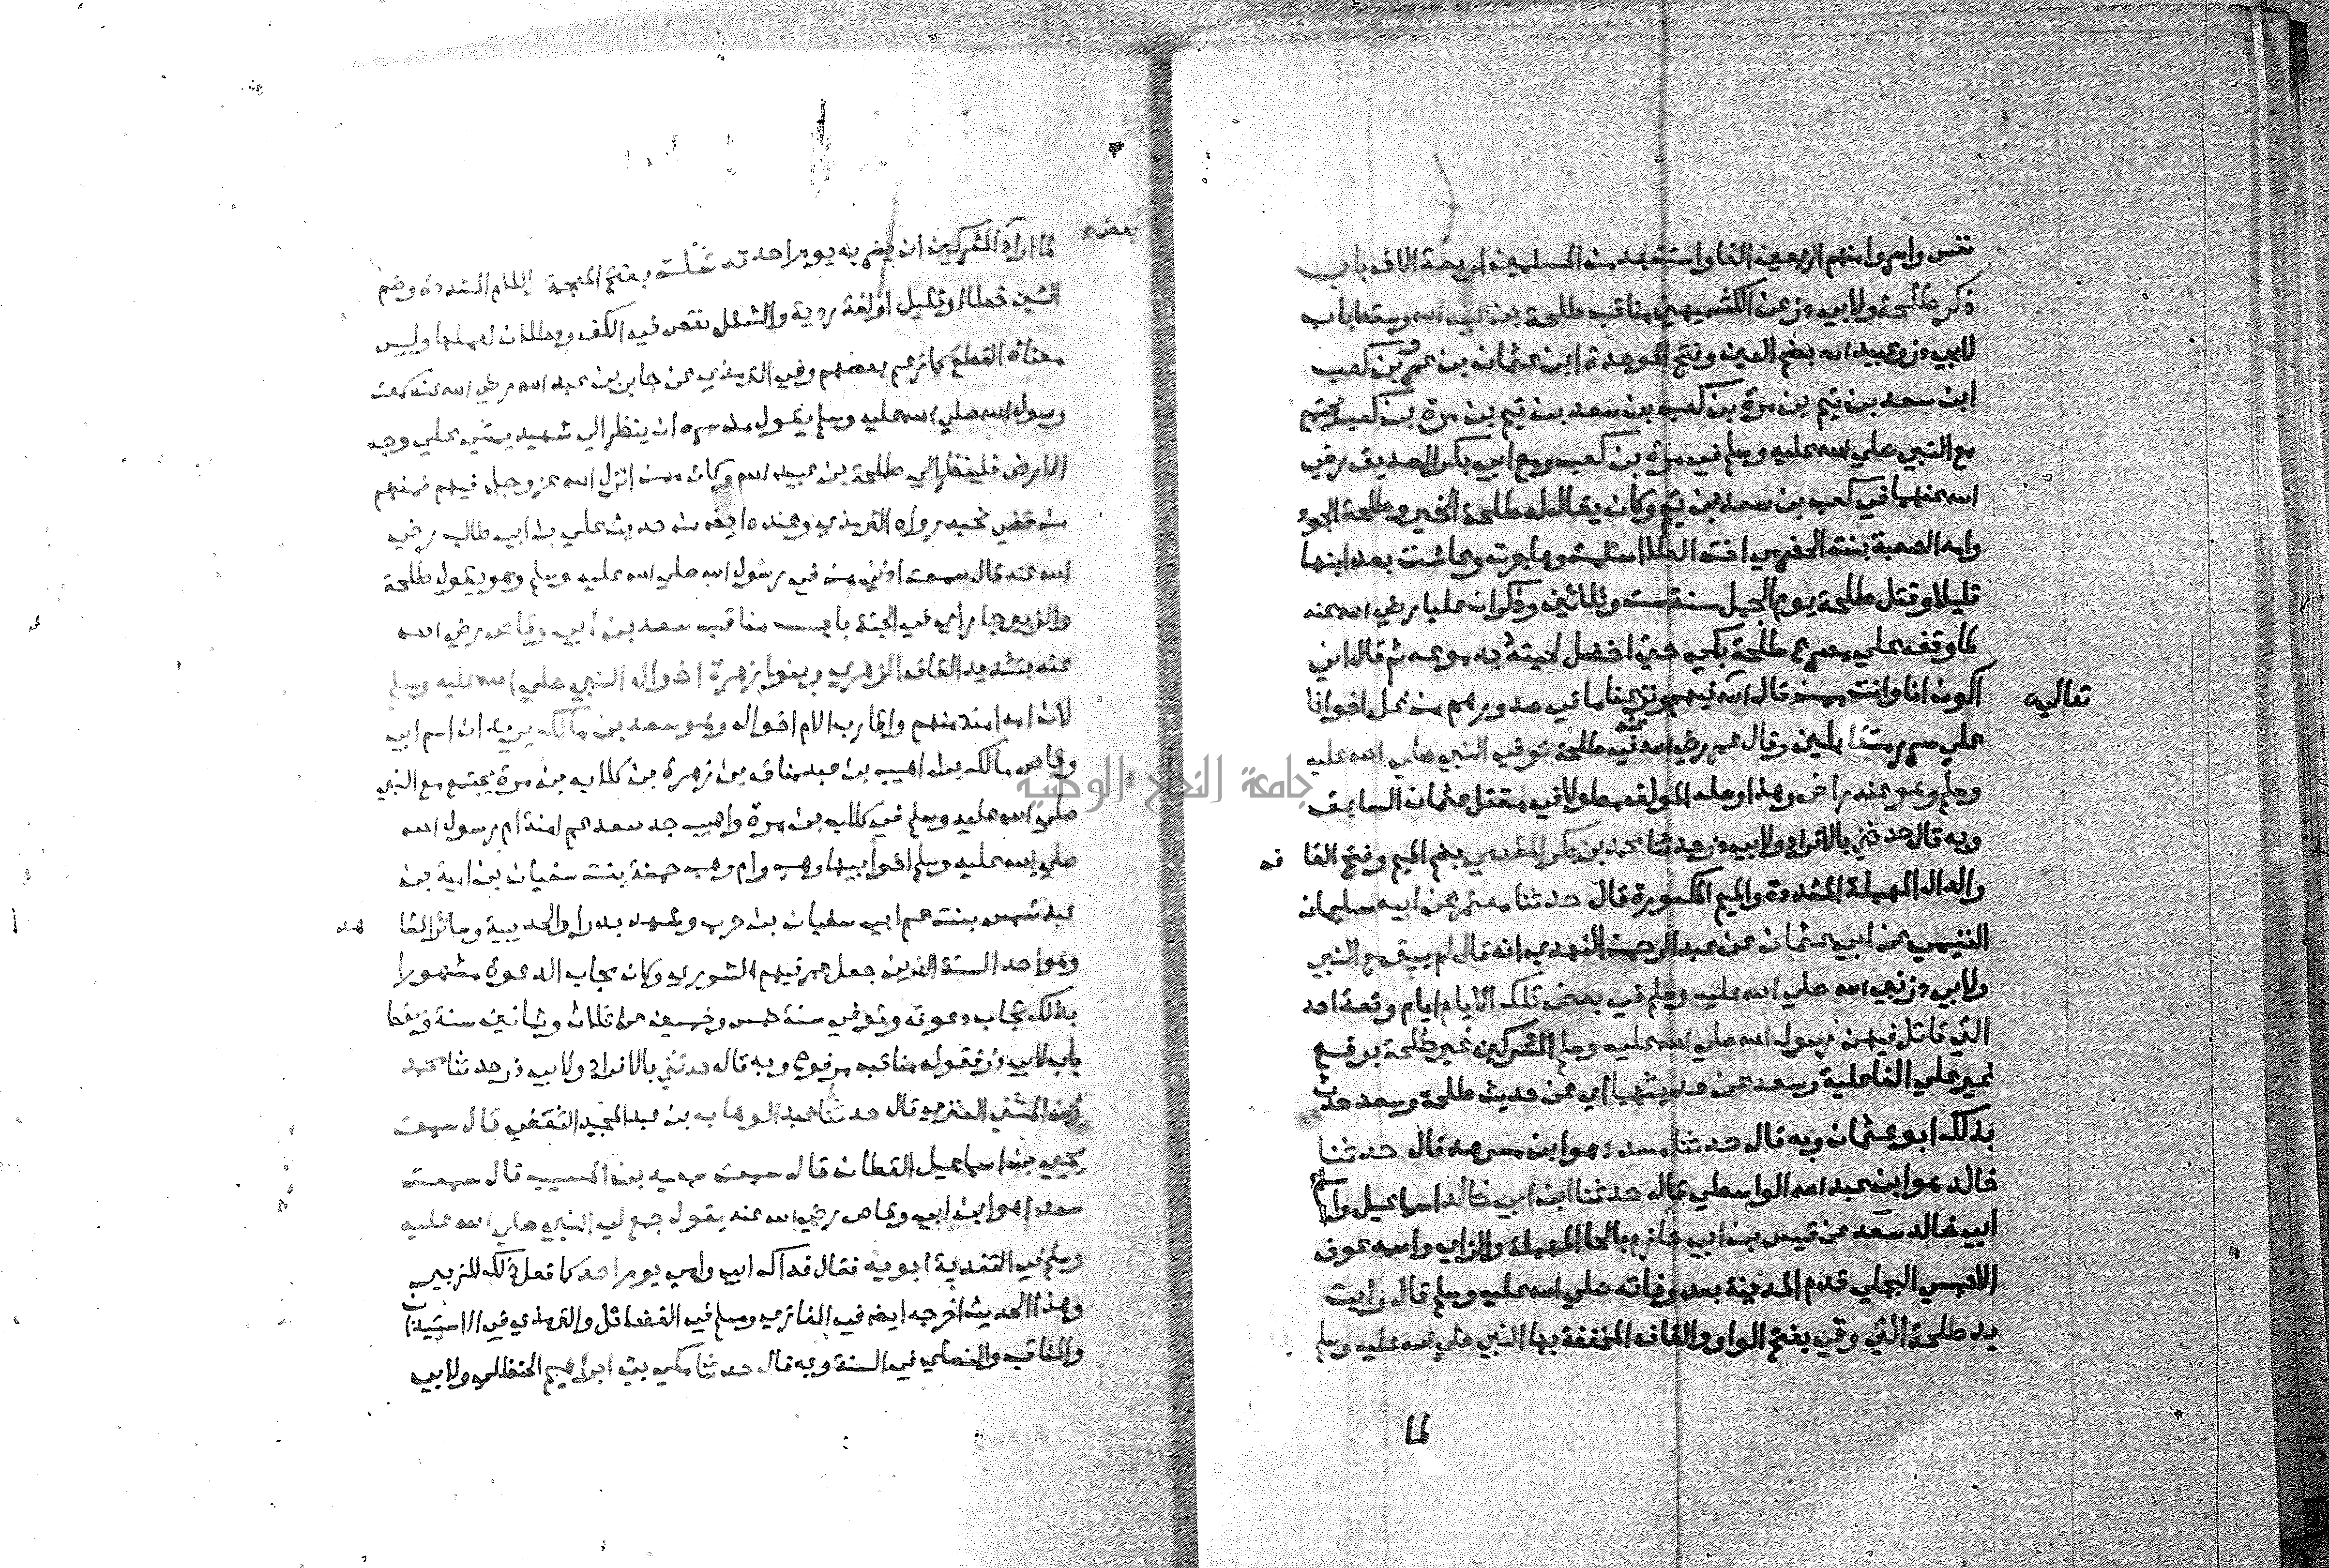 نفس واسروا منهم اربعين الفا واستشهد من المسلمين اربعة الاف باب
ذكر طلحة ولابي ذر عن الكشميهني مناقب طلحة بن عبيد الله وسقط باب
لابي ذر وعبيد الله بضم العين وفتح الموحدة ابن عثمان بن عمرو بن كعب
ابن سعد بن تيم بن مرة بن كعب بن سعد بن تيم بن مرة بن كعب يجتمع
مع النبي صلي الله عليه وسلم في مرة بن كعب ومع ابي بكر الصديق رضي
الله عنهما في كعب بن سعد بن تيم وكان يقال له طلحة الخير وطلحة الجود
وامه الصعبة بنت الحضرمي اخت العلا اسلمت وهاجرت وعاشت بعد ابنها
قليلا وقتل طلحة يوم الجمل سنة ست وثلاثين وذكر ان عليا رضي الله عنه
لما وقف علي مصرع طلحة بكي حتي اخضل لحيته بدموعه ثم قال اني
اكون انا وانت ممن قال الله فيهم ونزعنا ما في صدورهم من غل اخوانا
تعالي
علي سرر متقابلين وقال عمر رضي الله عنه في طلحة توفي النبي صلي الله عليه
وسلم وهو عنه راض وهذا وصله المولف مطولا في مقتل عثمان السابق
وبه قال حدثني بالافراد ولابي ذر حدثنا محمد بن بكر المقدمي بضم الميم وفتح القا ف
والدال المهملة المشددة والميم المكسورة قال حدثنا معتمر عن ابيه سليمان
التيمي عن ابي عثمان عن عبد الرحمن النهدي انه قال لم يبق مع النبي
ولابي ذر نبي الله صلي الله عليه وسلم في بعض تلك الايام ايام وقعة احد
التي قاتل فيهن رسول الله صلي الله عليه وسلم المشركين غير طلحة برفع
غير علي الفاعلية وسعد عن حديثهما اي عن حديث طلحة وسعد حدث
بذلك ابو عثمان وبه قال حدثنا مسدد هو ابن مسرهد قال حدثنا
خالد هو ابن عبد الله الواسطي قال حدثنا ابن ابي خالد اسماعيل واسم
ابي خالد سعد عن قيس بن ابي حازم بالحا المهملة والزاي واسمه عوف
الاحمسي البجلي قدم المدينة بعد وفاته صلي الله عليه وسلم قال رايت
يد طلحة التي وقي بفتح الواو والقاف المخففة بها النبي صلي الله عليه وسلم
لما
لما اراد المشركين ان يضربه يوم احد قد شلت بفتح المعجمة اللام المشددة وضم
بعض
الشين خطا او قليل او لغة ردية والشلل نقص في الكف وبطلان لعملها وليس
معناه القطع كما زعم بعضهم وفي الترمذي عن جابر بن عبد الله رضي الله عنه سمعت
رسول الله صلي الله عليه وسلم يقول من سره ان ينظر الي شهيد يمشي علي وجه
الارض فلينظر الي طلحة بن عبيد الله وكان ممن انزل الله عز وجل فيهم فمنهم
من قضي نحبه رواه الترمذي وعنده ايضا من حديث علي بن ابي طالب رضي
الله عنه قال سمعت اذني من في رسول الله صلي الله عليه وسلم وهو يقول طلحة
والزبير جاراي في الجنة باب مناقب سعد بن ابي وقاص رضي الله
عنه بتشديد القاف الزهري وبنوا زهرة اخوال النبي صلي الله عليه وسلم
لان امه امنة منهم واقارب الام اخوال وهو سعد بن مالك يريد ان اسم ابي
وقاص مالك بن اهيب بن عبد مناف بن زهرة بن كلاب بن مرة يجتمع مع النبي
صلي الله عليه وسلم في كلاب بن مرة واهيب جد سعد عم امنة ام رسول الله
صلي الله عليه وسلم اخو ابيها وهب وام وهب حمنة بنت سفيان بن امية بن
عبد شمس بنت عم ابي سفيان بن حرب وشهد بدرا والحديبية وسائر المشا هد
وهو احد الستة الذين جعل عمر فيهم الشوري وكان مجاب الدعوة مشهورا
بذلك تجاب دعوته وتوفي سنة خمس وخمسين عن ثلاث وثمانين سنة وسقط
باب لابي ذر فقوله مناقب مرفوع وبه قال حدثني بالافراد ولابي ذر حدثنا محمد
ابن المثني العنزي قال حدثنا عبد الوهاب بن عبد المجيد الثقفي قال سمعت
يحيي بن اسماعيل القطان قال سمعت سعيد بن المسيب قال سمعت
سعدا هو ابن ابي وقاص رضي الله عنه يقول جمع لي النبي صلي الله عليه
وسلم في التفدية ابويه فقال فداك ابي وامي يوم احد كما فعل ذلك للزبير
وهذا الحديث اخرجه ايضا في المغازي ومسلم في الفضائل والترمذي في الاستيذان
والمناقب والنسائي في السنة وبه قال حدثنا مكي بن ابراهيم الحنظلي ولابي
جامعة النجاح الوطنية